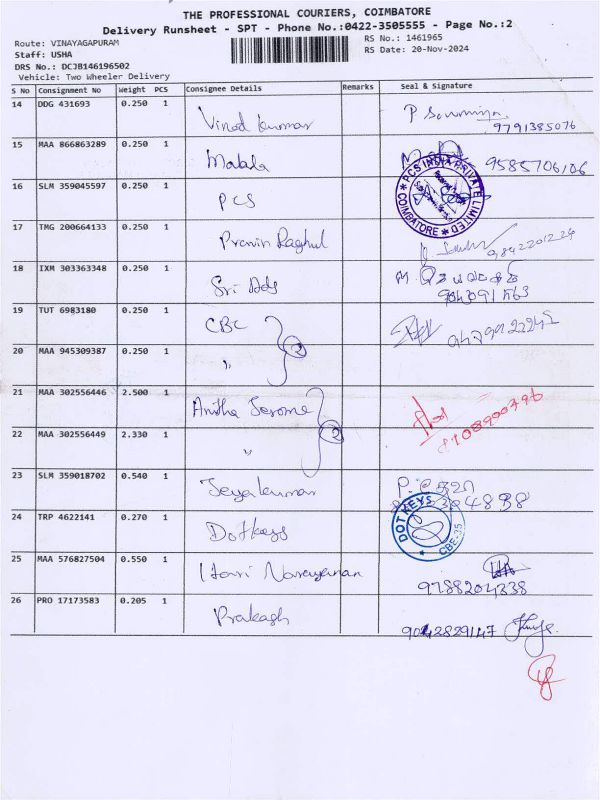 THE PROFESSIONAL COURIERS, COIMBATORE
Delivery Runsheet - SPT - Phone No.:0422-3505555 - Page No.:2
Route: VINAYAGAPURAM
RS No.: 1461965
Staff: USHA
RS Date: 20-Nov-2024
DRS No.: DCJB146196502
Vehicle: Two Wheeler Delivery
S No Consignment No Weight PCS Consignee Details Remarks Seal & Signature
14 DDG 431693 0.250 1 Vinod Kumar P Sowmiya
9791385076
15 MAA 866863289 0.250 1 Malala 9585706106
16 SLM 359045597 0.250 1 PCS PCS INDIA PRIVATE LIMITED COIMBATORE
17 TMG 200664133 0.250 1 Pravin Raghul 9842201224
18 IXM 303363348 0.250 1 Sri Ads
19 TUT 6983180 0.250 1 CBC
20 MAA 945309387 0.250 1 〃 2
21 MAA 302556446 2.500 1 Anitha Jerome 8108900796
22 MAA 302556449 2.330 1 〃 2
23 SLM 359018702 0.540 1 Jeyakumar
24 TRP 4622141 0.270 1 Dotkeys DOT KEYS CBE-35
25 MAA 576827504 0.550 1 Hari Narayanan
9788204338
26 PRO 17173583 0.205 1 Prakash 9042829147